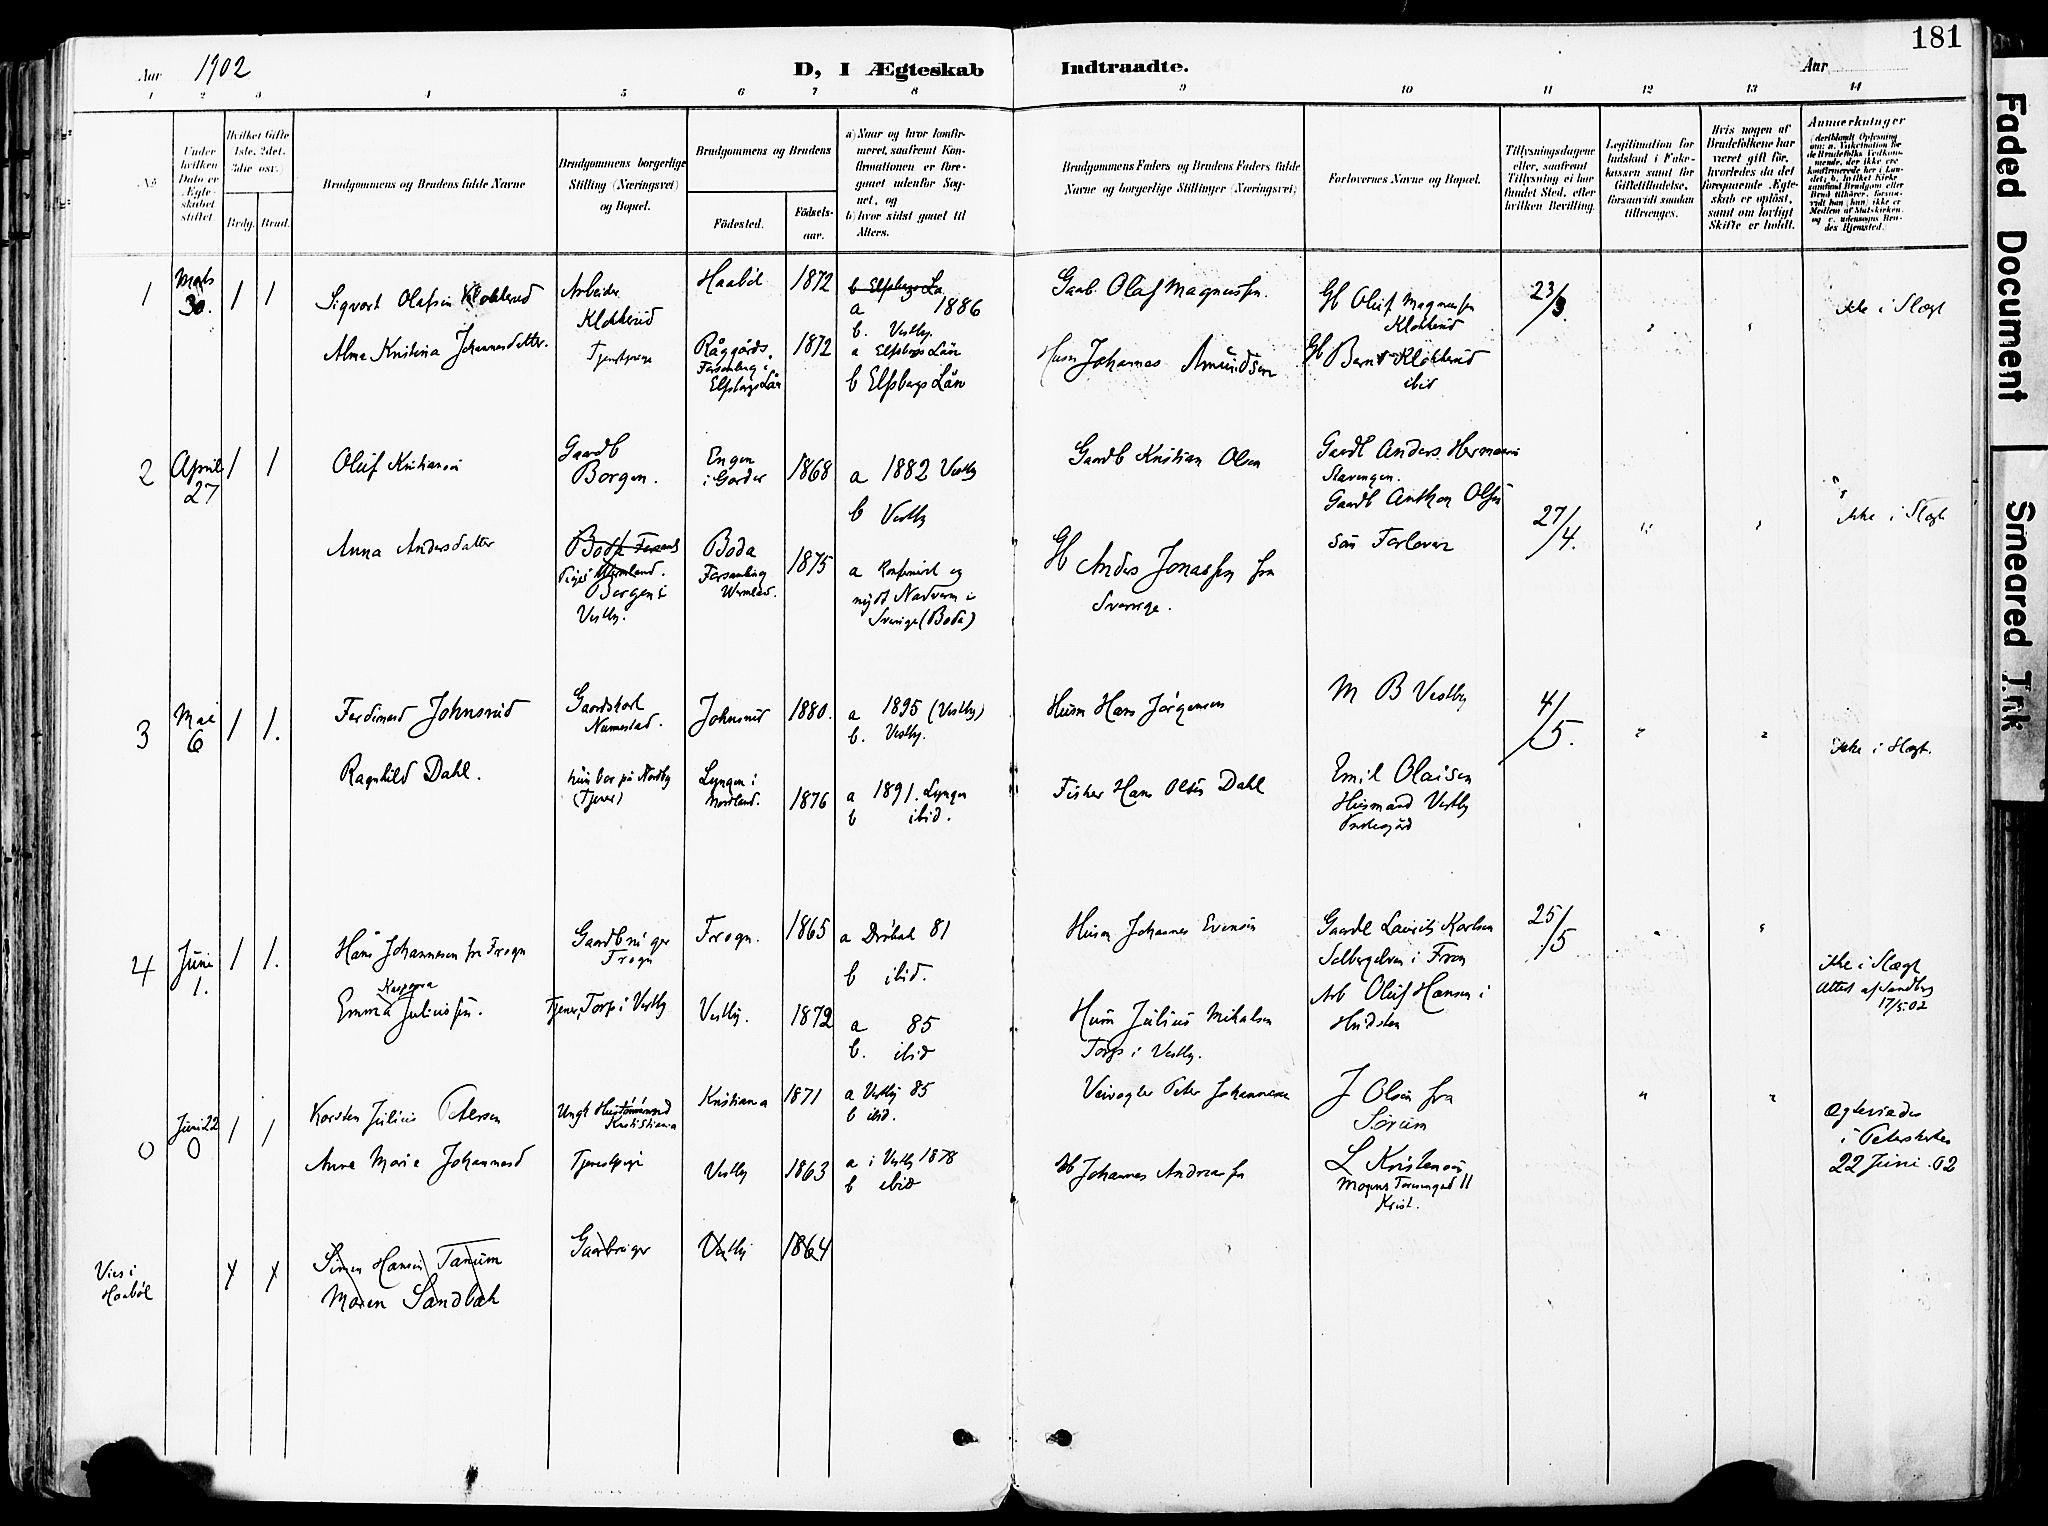 181
Aar 1902
D, I Ægteskab Indtraadte.
Aar
1 2 3 4 5 6 7 8 9 10 11 12 13 14
No
Under hvilken Dato er Ægteskabet stiftet
Hvilket Gifte 1ste, 2det, 3die osv.
Brdg. Brud.
Brudgommens og Brudens fulde Navne
Brudgommens borgerlige Stilling (Næringsvei) og Bopæl.
Brudgommens og Brudens
Födested.
Födselsaar.
a) Naar og hvor konfirmeret, saafremt Konfirmationen er foregaaet udenfor Sognet, og
b) hvor sidst gaaet til Alters.
Brudgommens Faders og Brudens Faders fulde Navne og borgerlige Stillinger (Næringsvei)
Forlovernes Navne og Bopæl.
Tillysningsdagene eller, saafremt Tillysning ei har fundet Sted, efter hvilken Bevilling.
Legitimation for Indskud i Enkekassen samt for Giftetilladelse, forsaavidt saadan tiltrænges.
Hvis nogen af Brudefolkene har været gift før, hvorledes da det foregaaende Ægteskab er oplöst, samt om lovligt Skifte er holdt.
Anmerkninger
1
Marts
30.
1 1
Sigvart Olafsen Klokkerud
Arbeider
Klokkerud
Haabøl
1872
b Elfsborgs Län
a 1886
b. Vestby.
Gaab. Olaf Magnussen.
Gb Oluf Magnussen
Klokkerud
23/3.
ikke i Slægt
Alma Kristina Johannesdatter.
Tjenstpige
Råggärds,
Forsamling i
Elfsborgs Län
1872
a Elfsborgs Län
b Elfsborgs Län
Husm Johannes Amundsen
Gb Bernt Klokkerud
ibid
2
April
27
1 1
Oluf Kristiansen
Gaardb
Borgen.
Engen
i Garder
1868
a 1882 Vestby
b Vestby
Gaardb Kristian Olsen
Gaardb Anders Hermansen
Stavengen.
Gaardb Anthon Olsen
som Forlover
27/4.
ikke i Slægt
Anna Andersdatter
Boda Forsaml
Wermland.
Borgen i
Vestby.
Boda
Forsamling
Wermland.
1875
a Konfirmeret og
nydt Nadveren i
Sverige (Boda)
Gb Anders Jonassen fra
Sverrige.
3
Mai
6
1 1.
Ferdinand Johnsrud
Gaardskarl
Nunnestad.
Johnsrud
1880.
a 1895 (Vestby)
b. Vestby.
Husm Hans Jørgensen
M B Vestby
4/5.
ikke i Slægt.
Ragnhild Dahl.
hun bor på Nordby
(Tjener)
Lyngen i
Nordland.
1876
a 1891. Lyngen
b ibid.
Fisker Hans Olsen Dahl
Emil Olaisen
Husmand Vestby
Prestegård
4
Juni
1.
1 1.
Hans Johannesen fra Frogn
Gaardbruger
Frogn
Frogn.
1865
a Drøbak 81
b ibid.
Husm Johannes Evensen
Gaardb Lauritz Karlsen
Solbergelven i Fron
25/5
ikke i Slægt
Attest af Sandberg
17/5.02
Kaspara
Emma Juliussen.
Tjener, Torp i Vestby
Vestby.
1872
a 85
b. ibid
Husm Julius Mikalsen
Torp i Vestby.
Arb Oluf Hansen i
Hvidsten
0
Juni 22
0
1 1
Karsten Julius Petersen
Ungk
Kristiania
Kristiania
1871
a Vestby 85
b ibid.
Veivogter Peter Johannesen
J Olsen fra
Sørum
Ægteviedes
i Peterskirken
22 Juni .02
Anne Marie Johannesd
Tjenestpige
Vestby
1863
a i Vestby 1878
b ibid
Johannes Andreassen
L Kristensen
Mogens Torsensgad 11
Krist.
Vies i
Haabøl
1 1
Simen Hansen Tanum
Gaardbruger
Vestby
1864
Maren Sandbæk
Faded Document
Smeared Ink